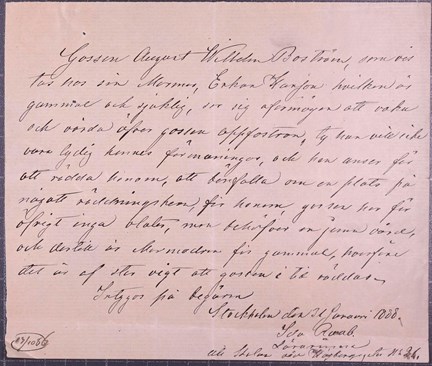 Gossen August Wilhelm Boström, som vis
tas hos sin Mormor, Enkan Karson hvilken är
gammal och sjuklig, ser sig oförmögen att vaka
och vårda öfver gossens uppfostran, ty han vill icke
vara lydig hennes förmaningar, och hon anser för
att rädda honom, att bönfalla om en plats på
något räddningshem, för honom, gossen har för
öfrigt inga olater, men behöfver en jemn vård,
och dertill är Mormodern för gammal, hvarföre
det är af stor vigt att gossen i tid räddas.
Intygas på begäran
Stockholm den 31 Januari 1888.
Ida
Lärarinna
vid Skolan Högbergsgatan No 26.